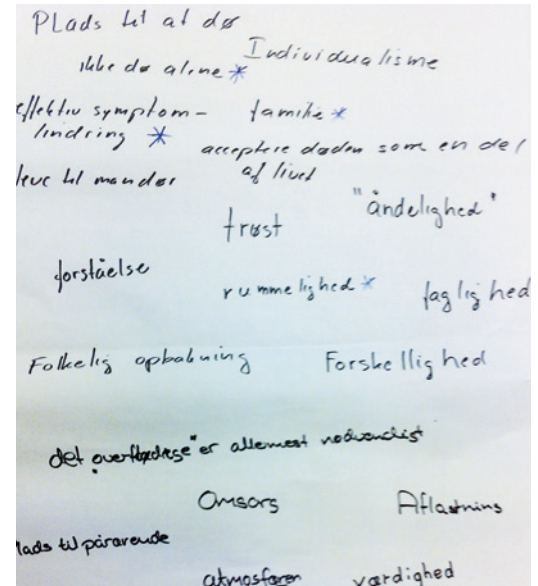 PLads til at dø
Individualisme
ikke dø alene *
effektiv symptom-
lindring *
familie *
acceptere døden som en del
af livet
leve til man dør
"åndelighed"
trøst
forståelse
rummelighed *
faglighed
Folkelig opbakning
Forskellighed
det "overflødige" er allermest nødvendigt
Omsorg
Aflastning
lads til pårørende
atmosfæren
værdighed